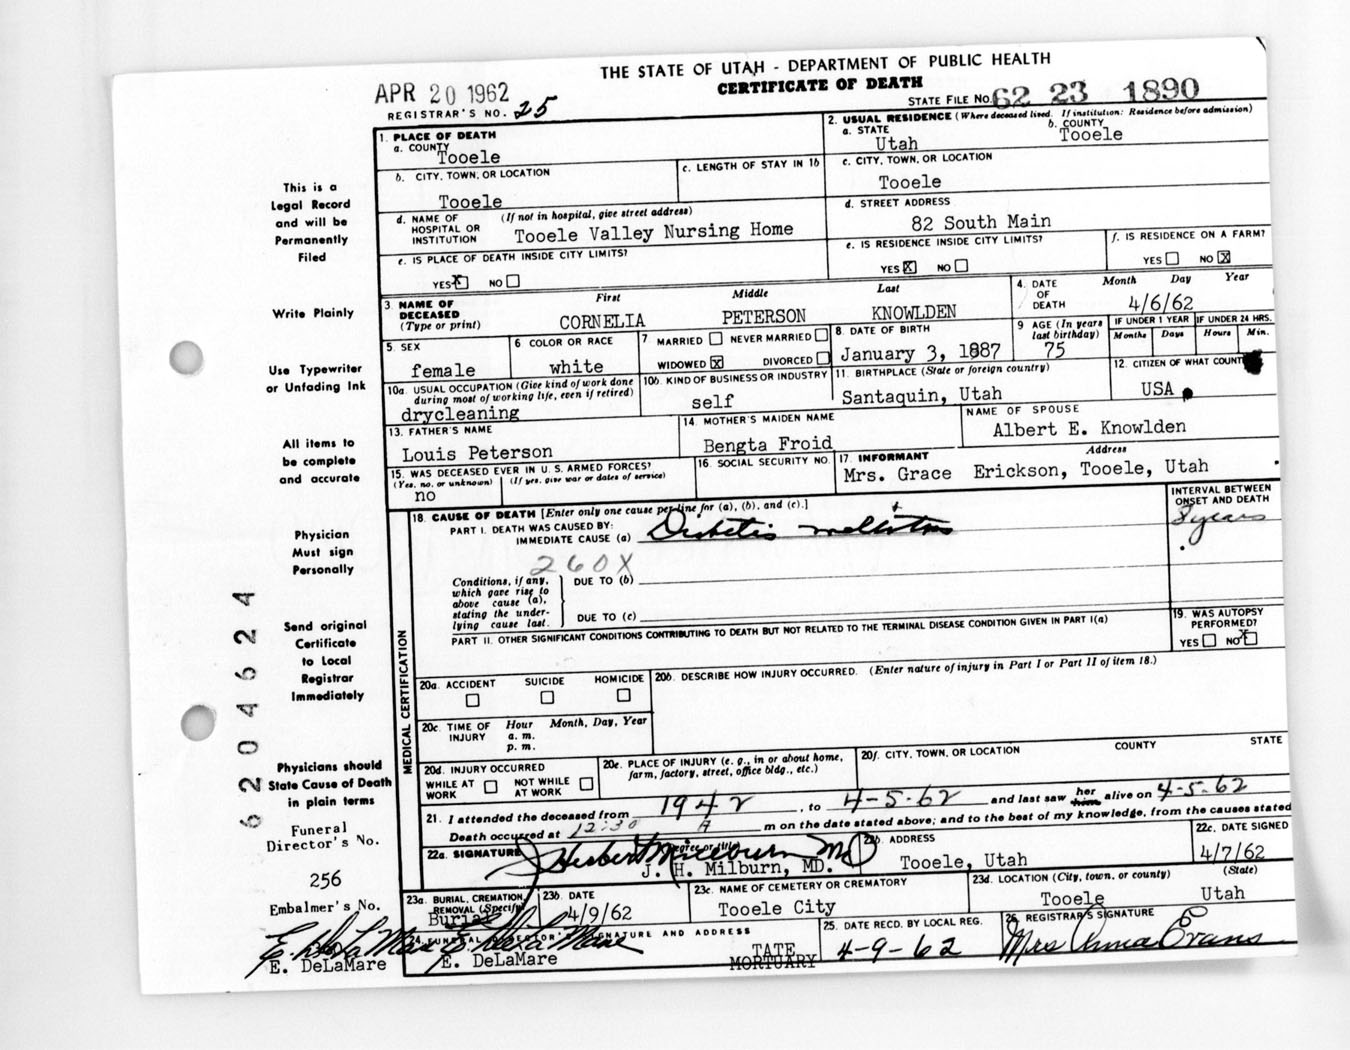 THE STATE OF UTAH - DEPARTMENT OF PUBLIC HEALTH
CERTIFICATE OF DEATH
APR 20 1962
REGISTRAR'S NO. 25
STATE FILE NO. 62 23 1890
This is a
Legal Record
and will be
Permanently
Filed
Write Plainly
Use Typewriter
or Unfading Ink
All items to
be complete
and accurate
Physician
Must sign
Personally
Send original
Certificate
to Local
Registrar
Immediately
Physicians should
State Cause of Death
in plain terms
Funeral
Director's No.
256
Embalmer's No.
E. DeLaMare
620 4624
1. PLACE OF DEATH
a. COUNTY
Tooele
2. USUAL RESIDENCE (Where deceased lived. If institution: Residence before admission)
a. STATE
Utah
b. COUNTY
Tooele
b. CITY, TOWN, OR LOCATION
Tooele
c. LENGTH OF STAY IN 1b
c. CITY, TOWN, OR LOCATION
Tooele
d. NAME OF HOSPITAL OR INSTITUTION
(If not in hospital, give street address)
Tooele Valley Nursing Home
d. STREET ADDRESS
82 South Main
e. IS PLACE OF DEATH INSIDE CITY LIMITS?
YES X NO
e. IS RESIDENCE INSIDE CITY LIMITS?
YES X NO
f. IS RESIDENCE ON A FARM?
YES NO X
3. NAME OF DECEASED
(Type or print)
First Middle Last
CORNELIA PETERSON KNOWLDEN
4. DATE OF DEATH
Month Day Year
4/6/62
5. SEX
female
6 COLOR OR RACE
white
7 MARRIED NEVER MARRIED
WIDOWED X DIVORCED
8. DATE OF BIRTH
January 3, 1887
9 AGE (In years last birthday)
75
IF UNDER 1 YEAR
Months Days
IF UNDER 24 HRS.
Hours Min.
10a. USUAL OCCUPATION (Give kind of work done during most of working life, even if retired)
drycleaning
10b. KIND OF BUSINESS OR INDUSTRY
self
11. BIRTHPLACE (State or foreign country)
Santaquin, Utah
12. CITIZEN OF WHAT COUNT
USA
13. FATHER'S NAME
Louis Peterson
14. MOTHER'S MAIDEN NAME
Bengta Froid
NAME OF SPOUSE
Albert E. Knowlden
15. WAS DECEASED EVER IN U. S. ARMED FORCES?
(Yes, no, or unknown) (If yes, give war or dates of service)
no
16. SOCIAL SECURITY NO.
17. INFORMANT Address
Mrs. Grace Erickson, Tooele, Utah
MEDICAL CERTIFICATION
18. CAUSE OF DEATH [Enter only one cause per line for (a), (b), and (c).]
PART I. DEATH WAS CAUSED BY:
IMMEDIATE CAUSE (a) Diabetis mellitus
INTERVAL BETWEEN ONSET AND DEATH
years
260X
Conditions, if any, which gave rise to above cause (a), stating the underlying cause last.
DUE TO (b)
DUE TO (c)
PART II. OTHER SIGNIFICANT CONDITIONS CONTRIBUTING TO DEATH BUT NOT RELATED TO THE TERMINAL DISEASE CONDITION GIVEN IN PART I(a)
19. WAS AUTOPSY PERFORMED?
YES NO X
20a. ACCIDENT SUICIDE HOMICIDE
20b. DESCRIBE HOW INJURY OCCURRED. (Enter nature of injury in Part I or Part II of item 18.)
20c. TIME OF INJURY
Hour Month, Day, Year
a. m.
p. m.
20d. INJURY OCCURRED
WHILE AT WORK NOT WHILE AT WORK
20e. PLACE OF INJURY (e. g., in or about home, farm, factory, street, office bldg., etc.)
20f. CITY, TOWN, OR LOCATION COUNTY STATE
21. I attended the deceased from 1942, to 4-5-62 and last saw her him alive on 4-5-62
Death occurred at 12:30 A m on the date stated above; and to the best of my knowledge, from the causes stated
22a. SIGNATURE (Degree or title)
J. Herbert Milburn MD
J. H. Milburn, MD.
22b. ADDRESS
Tooele, Utah
22c. DATE SIGNED
4/7/62
23a. BURIAL, CREMATION, REMOVAL (Specify)
Burial
23b. DATE
4/9/62
23c. NAME OF CEMETERY OR CREMATORY
Tooele City
23d. LOCATION (City, town, or county) (State)
Tooele Utah
24. FUNERAL DIRECTOR'S SIGNATURE AND ADDRESS
E. DeLaMare
TATE MORTUARY
25. DATE RECD. BY LOCAL REG.
4-9-62
26. REGISTRAR'S SIGNATURE
Mrs Anna Evans